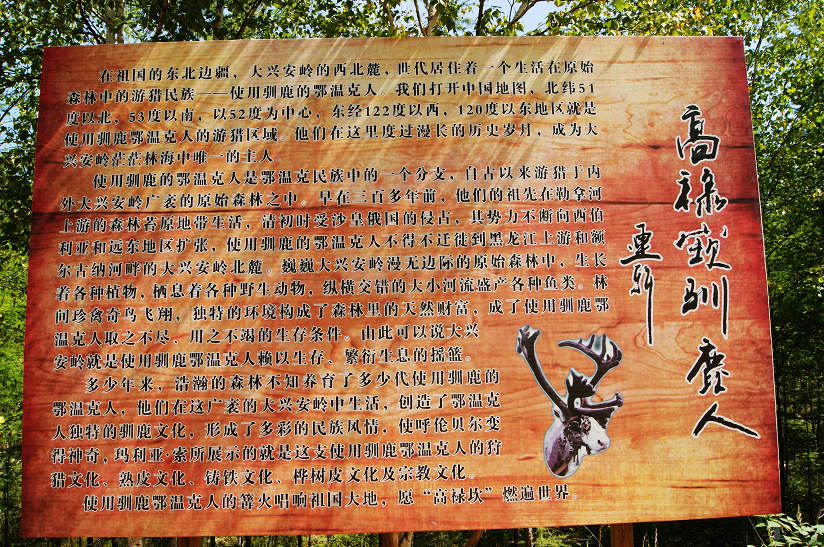 在祖国的东北边疆，大兴安岭的西北麓，世代居住着一个生活在原始
森林中的游猎民族——使用驯鹿的鄂温克人 我们打开中国地图，北纬51
度以北，53度以南，以52度为中心，东经122度以西，120度以东地区就是
使用驯鹿鄂温克人的游猎区域 他们在这里度过漫长的历史岁月，成为大
兴安岭茫茫林海中唯一的主人
使用驯鹿的鄂温克人是鄂温克民族中的一个分支，自古以来游猎于内
外大兴安岭广袤的原始森林之中。早在三百多年前，他们的祖先在勒拿河
上游的森林苔原地带生活，清初时受沙皇俄国的侵占，其势力不断向西伯
利亚和远东地区扩张，使用驯鹿的鄂温克人不得不迁徙到黑龙江上游和额
尔古纳河畔的大兴安岭北麓。巍巍大兴安岭漫无边际的原始森林中，生长
着各种植物，栖息着各种野生动物，纵横交错的大小河流盛产各种鱼类。林
间珍禽奇鸟飞翔，独特的环境构成了森林里的天然财富，成了使用驯鹿鄂
温克人取之不尽、用之不竭的生存条件。由此可以说大兴
安岭就是使用驯鹿鄂温克人赖以生存、繁衍生息的摇篮。
多少年来，浩瀚的森林不知养育了多少代使用驯鹿的
鄂温克人，他们在这广袤的大兴安岭中生活，创造了鄂温克
人独特的驯鹿文化，形成了多彩的民族风情，使呼伦贝尔变
得神奇，玛利亚·索所展示的就是这支使用驯鹿鄂温克人的狩
猎文化、熟皮文化、铸铁文化、桦树皮文化及宗教文化。
使用驯鹿鄂温克人的篝火唱响祖国大地，愿“高禄坎”燃遍世界。
高禄
驯鹿人